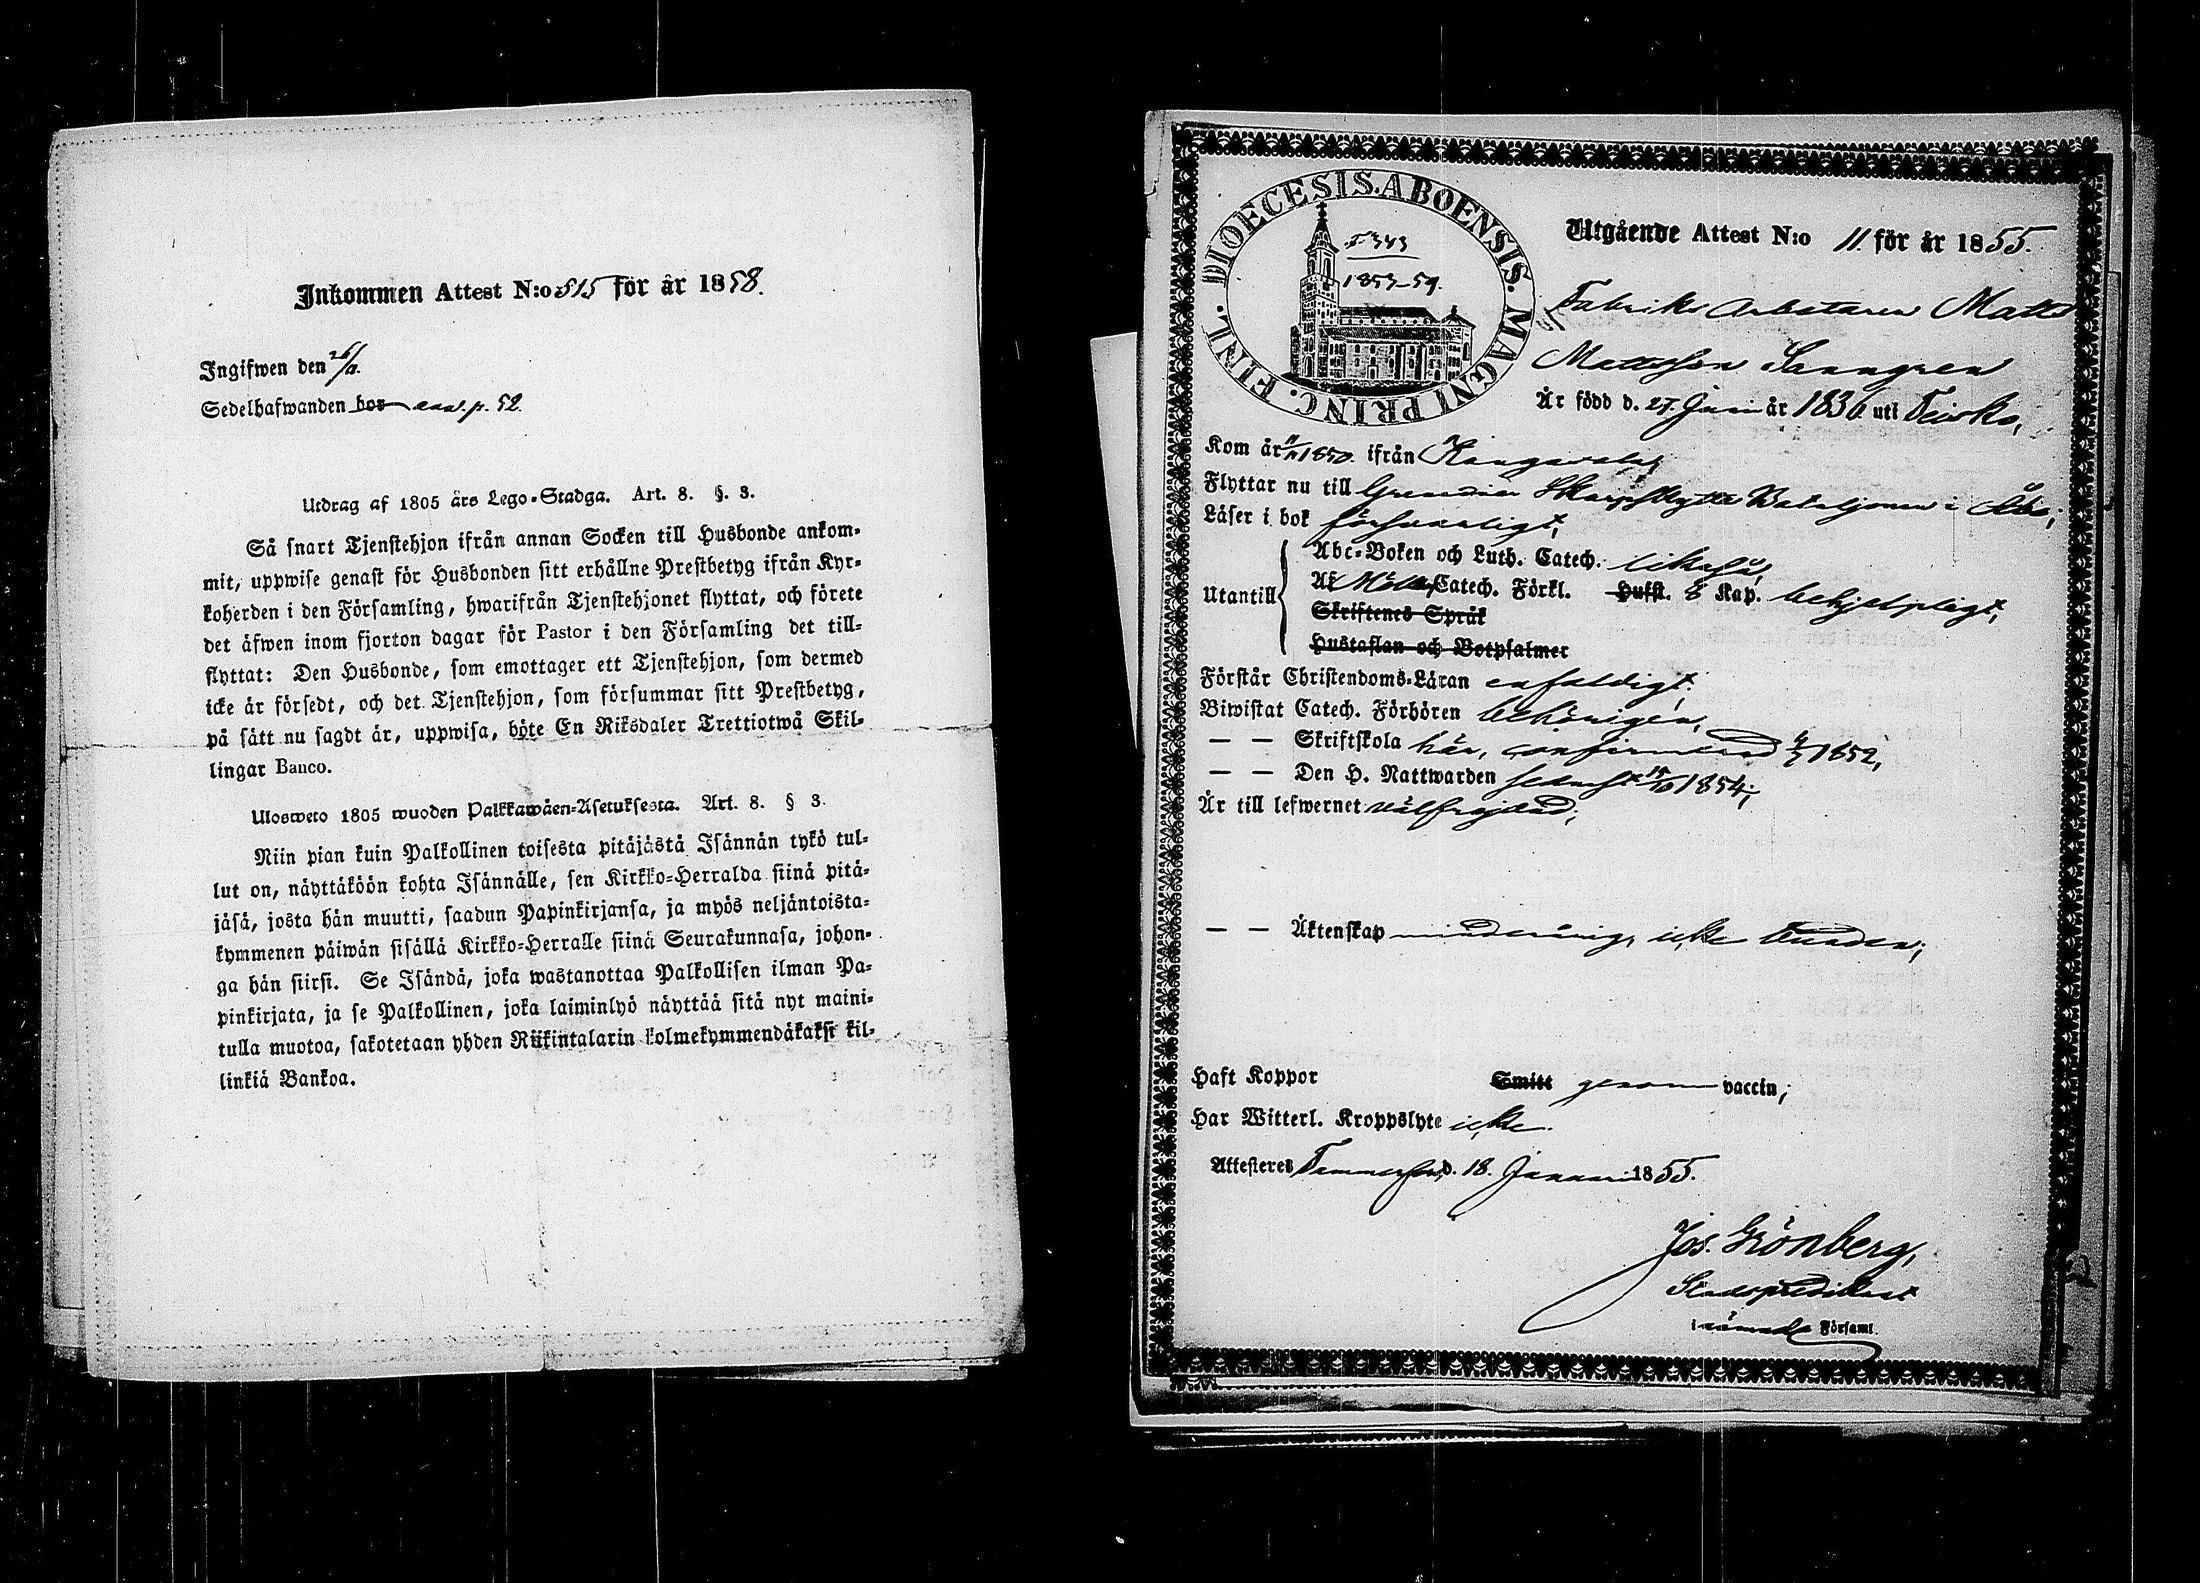 Inkommen Attest N:o 515 för år 1858.
Ingifwen den 26/
Sedelhafwanden bor p. 52.
Utdrag af 1805 års Lego-Stadga. Art. 8. §. 3.
Så snart Tjenstehjon ifrån annan Socken till Husbonde ankom-
mit, uppwise genast för Husbonden sitt erhållne Prestbetyg ifrån Kyr-
koherden i den Församling, hwarifrån Tjenstehjonet flyttat, och förete
det äfwen inom fjorton dagar för Pastor i den Församling det till-
flyttat: Den Husbonde, som emottager ett Tjenstehjon, som dermed
icke är försedt, och det Tjenstehjon, som försummar sitt Prestbetyg,
på sätt nu sagdt är, uppwisa, böte En Riksdaler Trettiotwå Skil-
lingar Banco.
Ulosweto 1805 wuoden Palkkawäen-Asetuksesta. Art. 8. § 3.
Niin pian kuin Palkollinen toisesta pitäjästä Isännän tykö tul-
lut on, näyttäköön kohta Isännälle, sen Kirkko-Herralda siinä pitä-
jäsä, josta hän muutti, saadun Papinkirjansa, ja myös neljäntoista-
kymmenen päiwän sisällä Kirkko-Herralle siinä Seurakunnasa, johon-
ga hän siirsi. Se Isändä, joka wastanottaa Palkollisen ilman Pa-
pinkirjata, ja se Palkollinen, joka laiminlyö näyttää sitä nyt maini-
tulla muotoa, sakotetaan yhden Riikintalarin kolmekymmendäkaksi kil-
linkiä Bankoa.
DIOECESIS. ABOENSIS. MAGNI PRINC. FINL.
F 343
1853-59.
Utgående Attest N:o 11 för år 1855.
Fabriks Arbetaren Matts
Mattsson Sanngren
Är född d. 27. Juni år 1836 uti Teisko,
Kom år 1850. ifrån Kangasala,
Flyttar nu till Grenadier Skarpskytte Bataljonen i Åbo;
Läser i bok försvarligt,
Utantill
Abc-Boken och Luth. Catech. likaså,
Af Möllers Catech. Förkl. Hufst. 8 Kap. behjelpligt,
Skriftenes Språk
Hustaflan och Botpsalmer
Förstår Christendoms-Läran enfaldigt.
Biwistat Catech. Förhören behörigen,
— — Skriftskola här, confirmerad 4/7 1852,
— — Den H. Nattwarden senast 15/10 1854;
Är till lefwernet välfrejdad;
— — Äktenskap minderårig, icke bunden;
Haft Koppor Smitt genom vaccin;
Har Witterl. Kroppslyte icke.
Attesteres Tammerfors, d. 18. Januari 1855.
Jos. Grönberg,
Stadspredikant
i nämnde Församl.